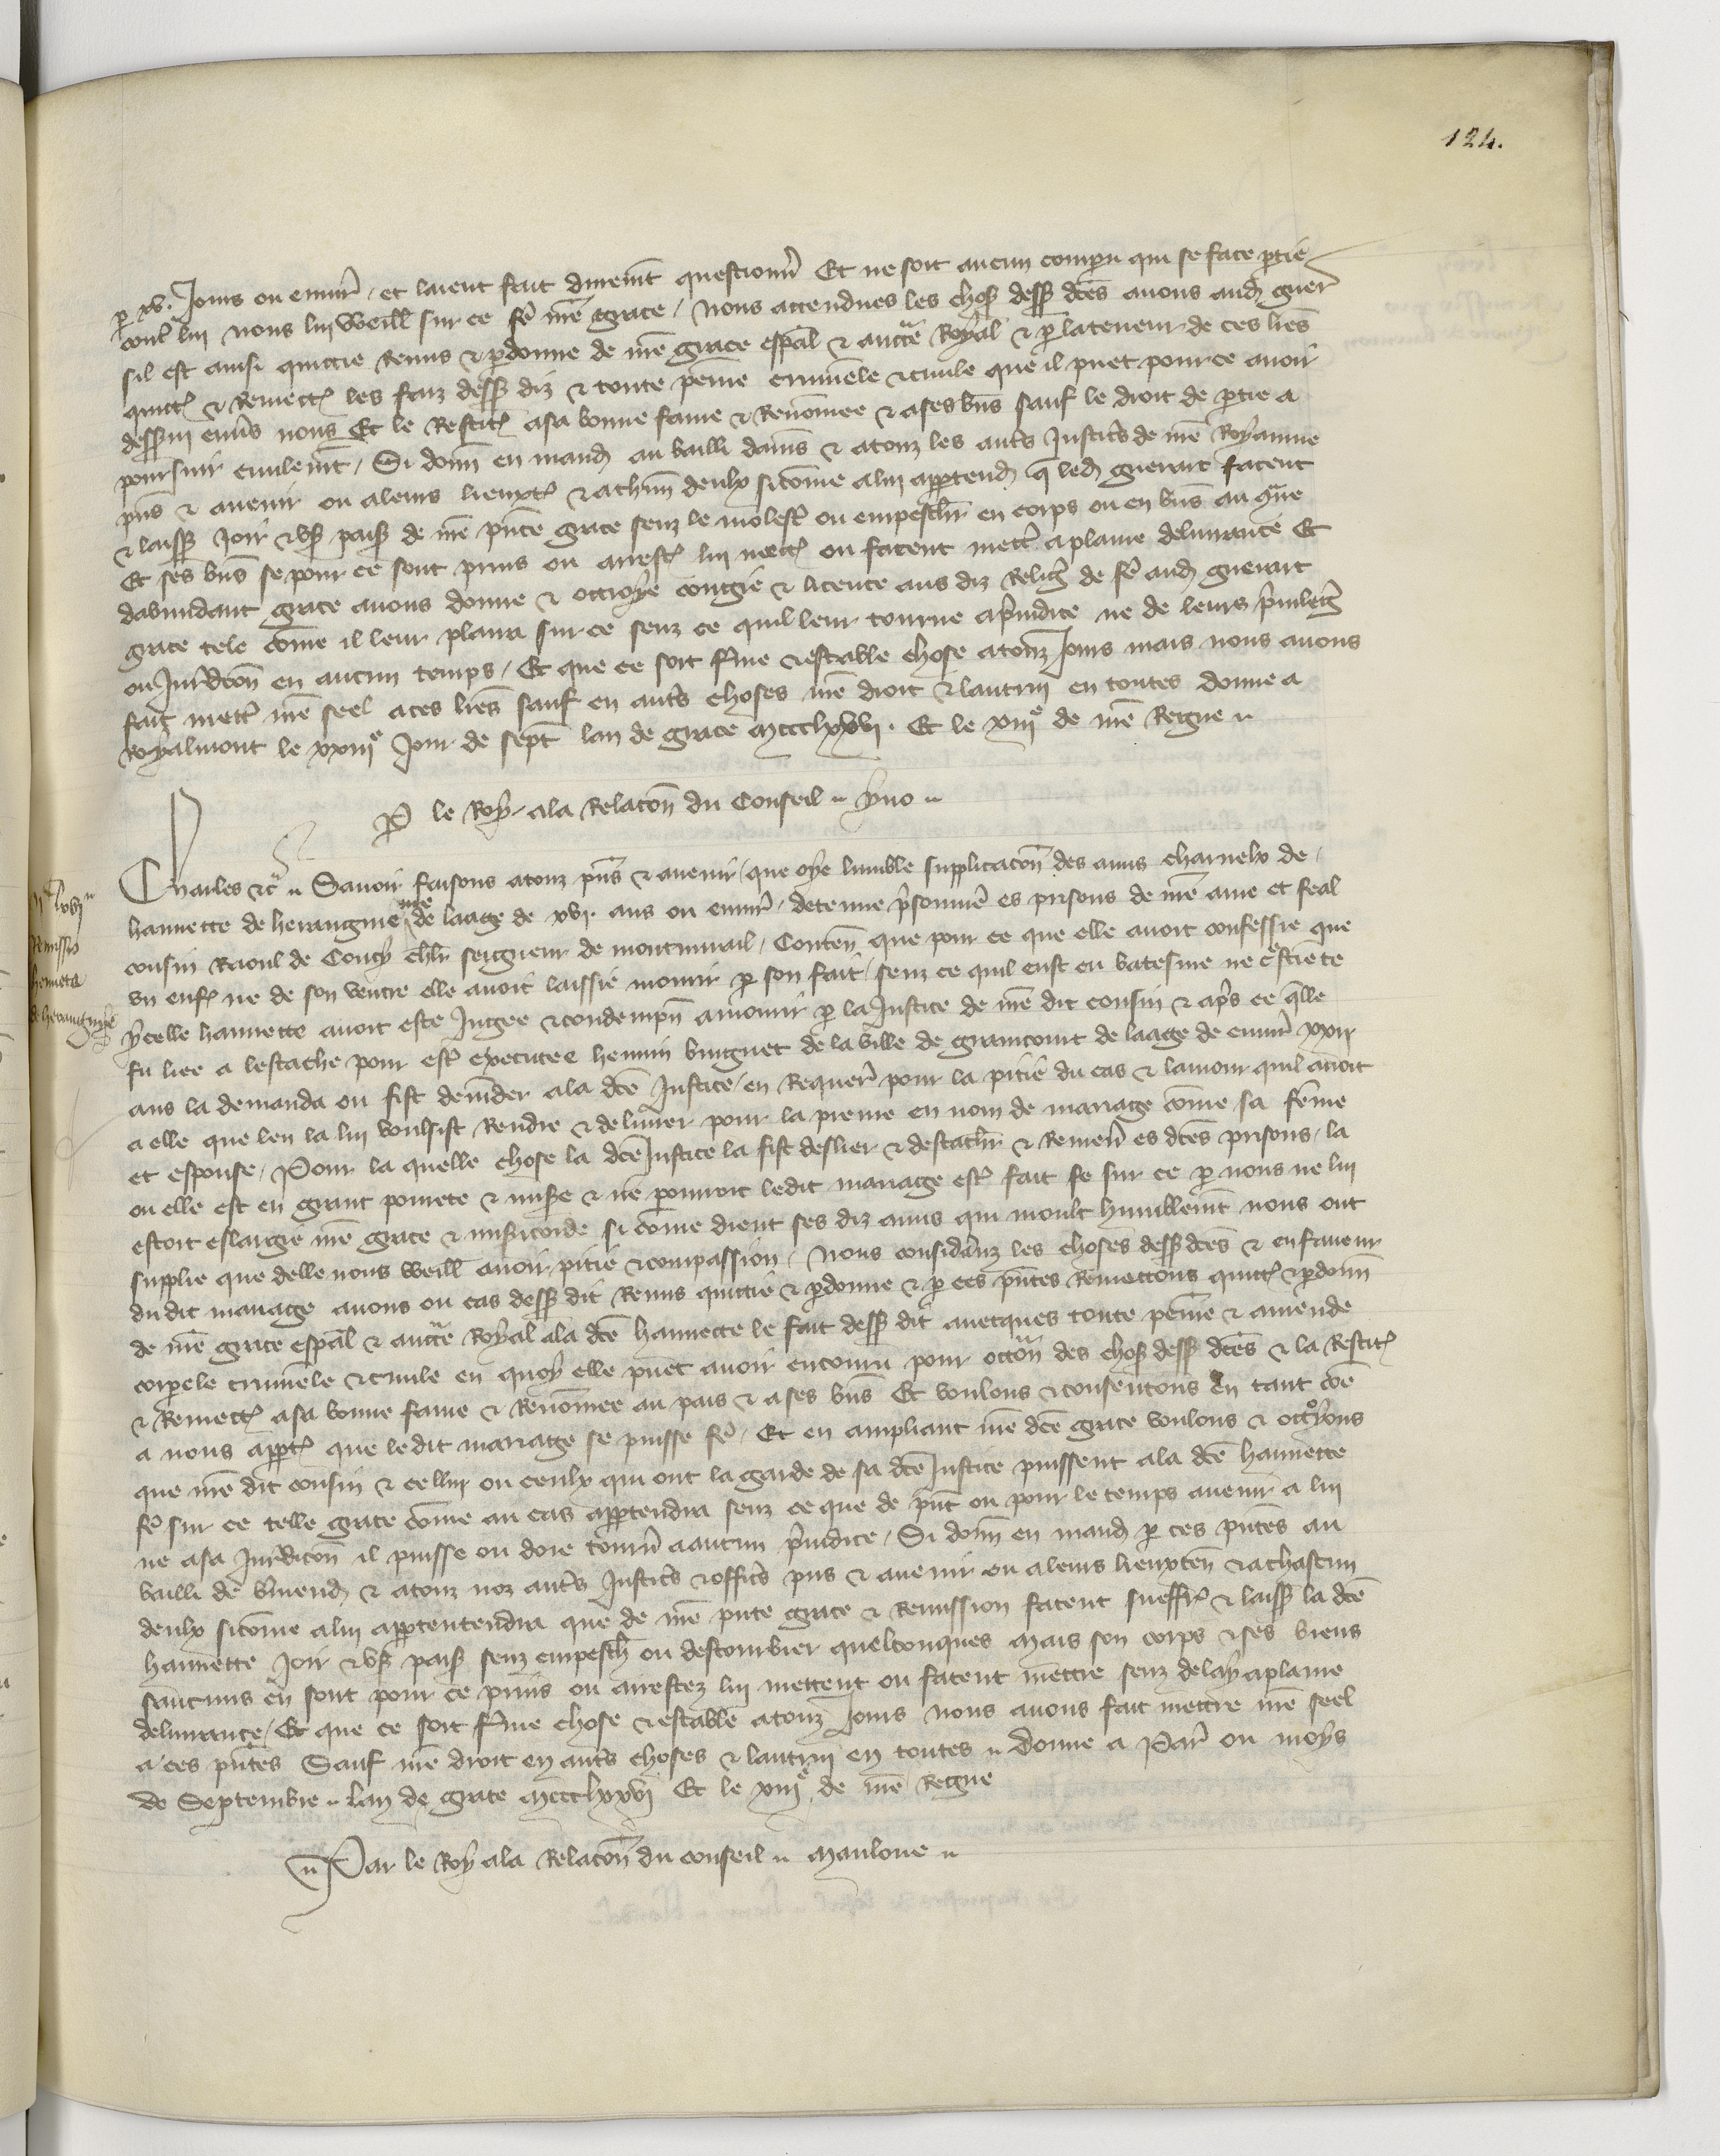 124.
p xv. Jours ou enuir̃ / et laient fait durem̃t questionn̾ Et ne soit aucun comparu qui se face ptie
cont̾ lui nous lui weill̾ sur ce fẽ nr̃e grace / Nous attendues les chos̾ dess̾ dc̃es auons aud̾ guer̾
sil est ainsi quictie Remis & pdonne de nr̃e grace esp̃al & auctĩe Royal & p la teneur de ces lr̃es
quitt̾ & Remett̾ les faiz dess̾ diz & toute peine criminele & ciuile que il puet pour ce auoir
desserui enũs nous Et le Restit̾ a sa bonne fame & Renom̃ee & a ses bñs sauf le droit de ptie a
poursuir ciuilem̃t / Si donñ en mand̾ au bailli damiẽs & a touz les autr̃s Justic̾s de nr̃e Royaume
pñs & auenir ou a leurs lieuxt̾ & a chũn deulx si com̃e a lui appartend̾ q̃ led̾ guerart facent
& laiss̾ Joir & vs̾ paisib̾ de nr̃e pñte grace senz le molest̾ ou empesch̾r en corps ou en biẽs au ꝯtr̃e
Et ses biẽs se pour ce sont prins ou arrest̾ lui mett̾ ou facent mett̾ a plaine deliurance Et
dabundant grace auons donne & ottroye congie & licence aus diz Religˀ de fẽ aud̾ guerart
grace tele com̃e il leur plaira sur ce senz ce quil leur tourne a p̃iudice ne de leurs p̃iuileg̾
ou Jurid̃con en aucun temps / Et que ce soit f̃me & estable chose a touz Jours mais nous auons
fait mett̾ nr̃e seel a ces lr̃es sauf en autr̃s choses nr̃e droit & lautrui en toutes donne a
Royalmont le xxiiiᵉ Jour de sept̾ lan de grace mccclxxvi. Et le xiiiᵉ de nr̃e Regne ~
P le Roy a la Relac̃on du Conseil ~ yuo ~
Remissio
Charles &c̾ ~ Sauoir faisons a touz pñs & auenir / que oye lumble supplicac̃on des amis charnelx de /
hannette de heraugnie de laage de xvi. ans ou enuir̃ / detenue p̃sonniẽ es prisons de nr̃e ame et feal
cousin Raoul de Coucy chl̾r seigneur de montmirail / Conten̾ que pour ce que elle auoit confessie que
vn enf̾ ne de son ventre elle auoit laissie mourir p son fait / senz ce quil eust eu batesme ne c̾stiete
ycelle hannette auoit este Jugee & condempñ a mourir p la Justice de nr̃e dit cousin & apr̃s ce q̃lle
fu liee a lestache pour est̾ executee hennin de la ville de de laage de enuir̃ xxii
ans la demanda ou fist dem̃der a la dc̃e Justice / en Requer̃ pour la pitie du cas & lamour quil auoit
a elle que len la lui voulsist Rendre & deliurer pour la prenre en nom de mariage com̃e sa fem̃e
et espouse / Pour la quelle chose la dc̃e Justice la fist deslier & destach̾r & Remen̾ es dc̃es prisons / la
ou elle est en grant pourete & mis̾e & ne pourroit ledit mariage est̾ fait se sur ce p nous ne lui
estoit eslargie nr̃e grace & mis̾icorde si com̃e dient ses diz amis qui moult humblem̃t nous ont
supplie que delle nous weill̾ auoir pitie & compassion / Nous considãnz les choses dess̾ dc̃es & en faueur
du dit mariage auons ou cas dess̾ dit Remis quictie & pdonne & p ces pñtes Remettons quitt̾ & pdonñ
de nr̃e grace esp̃al & auctĩe Royal a la dc̃e hannette le fait dess̾ dit auecques toute peine & amende
corpele criminele & ciuile en quoy elle puet auoir encouru pour occõn des chos̾ dess̾ dc̃es & la Restit̾
& Remett̾ a sa bonne fame & Renom̃ee au pais & a ses biẽs Et voulons & consentons en tant com̃e
a nous appt̾ que ledit mariage se puisse fẽ / Et en ampliant nr̃e dc̃e grace voulons & ottroyons
que nr̃e dit cousin & cellui ou ceulx qui ont la garde de sa dc̃e Justice puissent a la dc̃e hannette
fẽ sur ce telle grace com̃e au cas appartendra senz ce que de pñt ou pour le temps auenir a lui
ne a sa Jurid̃icon il puisse ou doie tourñ a aucun p̃iudice / Si donñ en mand̾ p ces pñtes au
bailli de v̾mend̾ & a touz noz autr̃s Justic̾s & offic̾s pñs & auenir ou a leurs lieuxten̾ & a chascun
deulx si com̃e a lui appartentendra que de nr̃e pñte grace & Remission facent sueffr̾ & laiss̾ la dc̃e
hannette Joir & vs̾ paisib̾ senz empesch̾ ou destourbier quelconques Mais son corps & ses biens
saucuns en sont pour ce prins ou arrestez lui mettent ou facent mettre senz delay a plaine
deliurance / Et que ce soit f̃me chose & estable a touz Jours nous auons fait mettre nr̃e seel
a ces pñtes Sauf nr̃e droit en autr̃s choses & lautrui en toutes ~ Donne a Par̾ ou moys
de Septembre ~ lan de grace mccclxxvi Et le xiiiᵉ de nr̃e Regne
~ Par le Roy a la Relac̃on du conseil ~ Mauloue ~